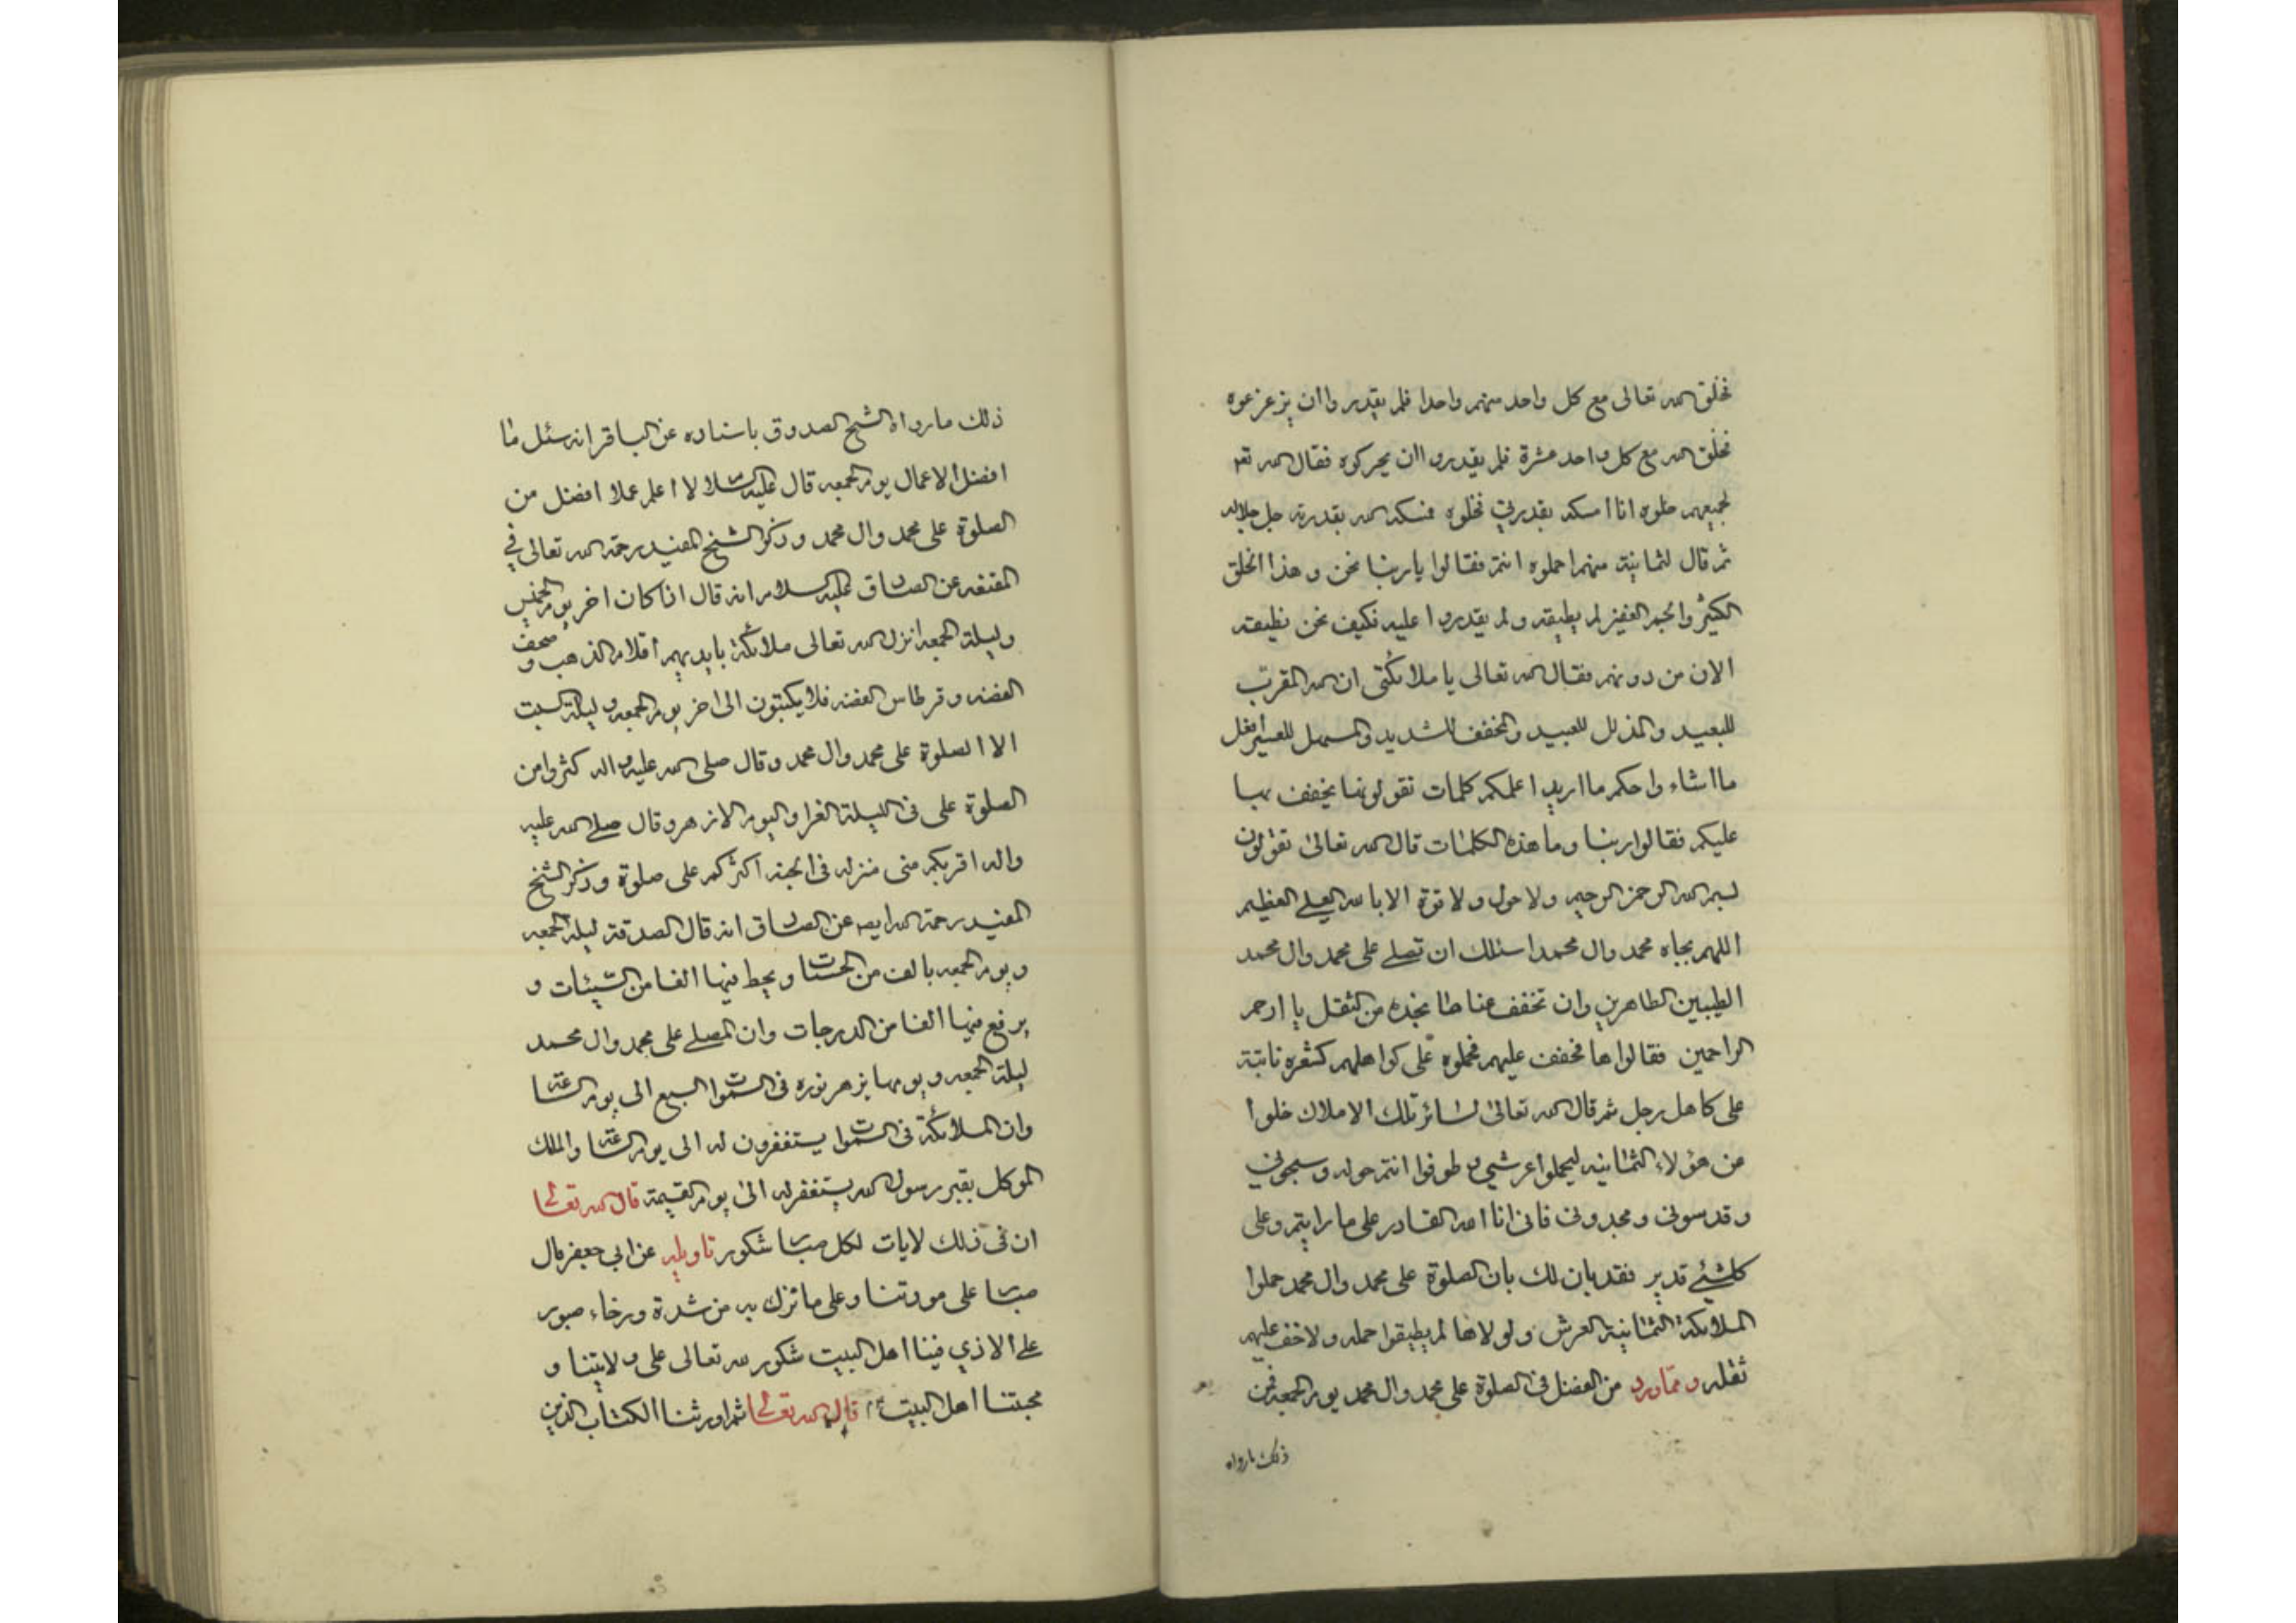 فخلق الله تعالى مع كل واحد منهم واحدا فلم يقدروا ان يزعزعوه
فخلق الله مع كل واحد عشرة فلم يقدروا ان يحركوه فقال الله تعه
لجميعهم خلوه انا امسكه بقدرتي فخلوه فمسكه الله بقدرته جل جلاله
ثم قال لثمانية منهم احملوه انتم فقالوا يا ربنا نحن و هذا الخلق
الكثير والجم الغفير لم يطيقه و لم يقدروا عليه فكيف نحن نطيقه
الان من دونهم فقال الله تعالى يا ملائكتى ان الله المقرب
للبعيد والمذلل للعبيد والمخفف للشديد والمسهل للعسير افعل
ما اشاء واحكم ما اريد اعلمكم كلمات تقولونها يخفف بها
عليكم فقالوا ربنا وما هذه الكلمات قال الله تعالى تقولون
بسم الله الرحمن الرحيم ولا حول ولا قوة الا بالله العلي العظيم
اللهم بجاه محمد وال محمد اسئلك ان تصلے على محمد وال محمد
الطيبين الطاهرين وان تخفف عنا ما نجده من الثقل يا ارحم
الراحمين فقالوا ها فخفف عليهم فحملوه على كواهلهم كشعره نابتة
على كاهل رجل ثم قال الله تعالى لسائر تلك الاملاك خلوا
عن هؤلاء الثمانيه ليحملوا عرشي و طوفوا انتم حوله وسبحوني
وقدسونى ومجدونى فانى انا الله القادر على ما رايتم وعلى
كلشئے قدير فقد بان لك بان الصلوة على محمد وال محمد حملوا
الملائكة الثمانية العرش ولولاها لم يطيقوا حمله ولا خف عليهم
ثقله و مما ورد من الفضل فى الصلوة على محمد وال محمد يوم الجمعه فمن
ذلك مارواه
ذلك ما رواه الشيخ الصدوق باسناده عن الباقر انه سئل ما
افضل الاعمال يوم الجمعه قال عليه السلام لا اعلم عملا افضل من
الصلوة على محمد وال محمد وذكر الشيخ المفيد رحمة الله تعالى في
المقنعه عن الصادق عليه السلام انه قال اذا كان اخر يوم الخميس
وليلة الجمعه انزل الله تعالى ملائكة بايديهم اقلام الذهب و صحف
الفضه وقرطاس الفضه فلا يكتبون الى اخر يوم الجمعه و ليلة السبت
الا الصلوة على محمد وال محمد وقال صلى الله عليه واله كثروا من
الصلوة على فى الليلة الغرا واليوم الازهر وقال صلے الله عليه
واله اقربكم منى منزله فى الجنه اكثركم على صلوة وذكر الشيخ
المفيد رحمة الله ايضا عن الصادق انه قال الصدقة ليلة الجمعه
و يوم الجمعه بالف من الحسنات و يحط فيها الفا من السيئات و
يرفع فيها الفا من الدرجات وان المصلے على محمد وال محمد
ليلة الجمعه و يومها يزهر نوره فى السموات السبع الى يوم الساعة
وان الملائكة فى السموات يستغفرون له الى يوم الساعة والملك
الموكل بقبر رسول الله يستغفر له الى يوم القيمة قال الله تعالى
ان فى ذلك لايات لكل صبار شكور تاويله عن ابي جعفر قال
صبار على مودتنا وعلى ما نزل به من شدة ورخاء صبور
على الاذي فينا اهل البيت شكور لله تعالى على ولايتنا و
محبتنا اهل البيت قال الله تعالى ثم اورثنا الكتاب الذين